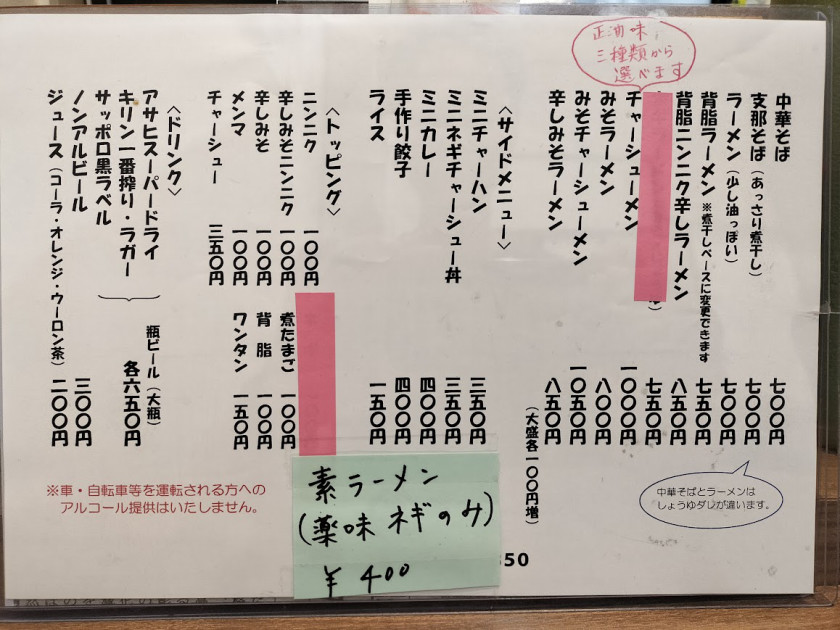 正油味
三種類から
選べます
中華そば 七〇〇円
支那そば（あっさり煮干し） 七〇〇円
ラーメン（少し油っぽい） 七〇〇円
背脂ラーメン ※煮干しベースに変更できます 七五〇円
背脂ニンニク辛しラーメン 八五〇円
七五〇円
チャーシューメン 一〇〇〇円
みそラーメン 八〇〇円
みそチャーシューメン 一〇五〇円
辛しみそラーメン 八五〇円
（大盛各一〇〇円増）
中華そばとラーメンは
しょうゆダレが違います。
〈サイドメニュー〉
ミニチャーハン 三五〇円
ミニネギチャーシュー丼 三五〇円
ミニカレー 四〇〇円
手作り餃子 四〇〇円
ライス 一五〇円
〈トッピング〉
ニンニク 一〇〇円
辛しみそニンニク 一〇〇円
辛しみそ 一〇〇円
メンマ 一〇〇円
チャーシュー 三五〇円
煮たまご 一〇〇円
背脂 一〇〇円
ワンタン 一五〇円
〈ドリンク〉
アサヒスーパードライ
キリン一番搾り・ラガー
サッポロ黒ラベル
瓶ビール（大瓶）
各六五〇円
ノンアルビール 三〇〇円
ジュース（コーラ・オレンジ・ウーロン茶） 二〇〇円
※車・自転車等を運転される方への
アルコール提供はいたしません。
素ラーメン
（薬味ネギのみ）
¥400
50